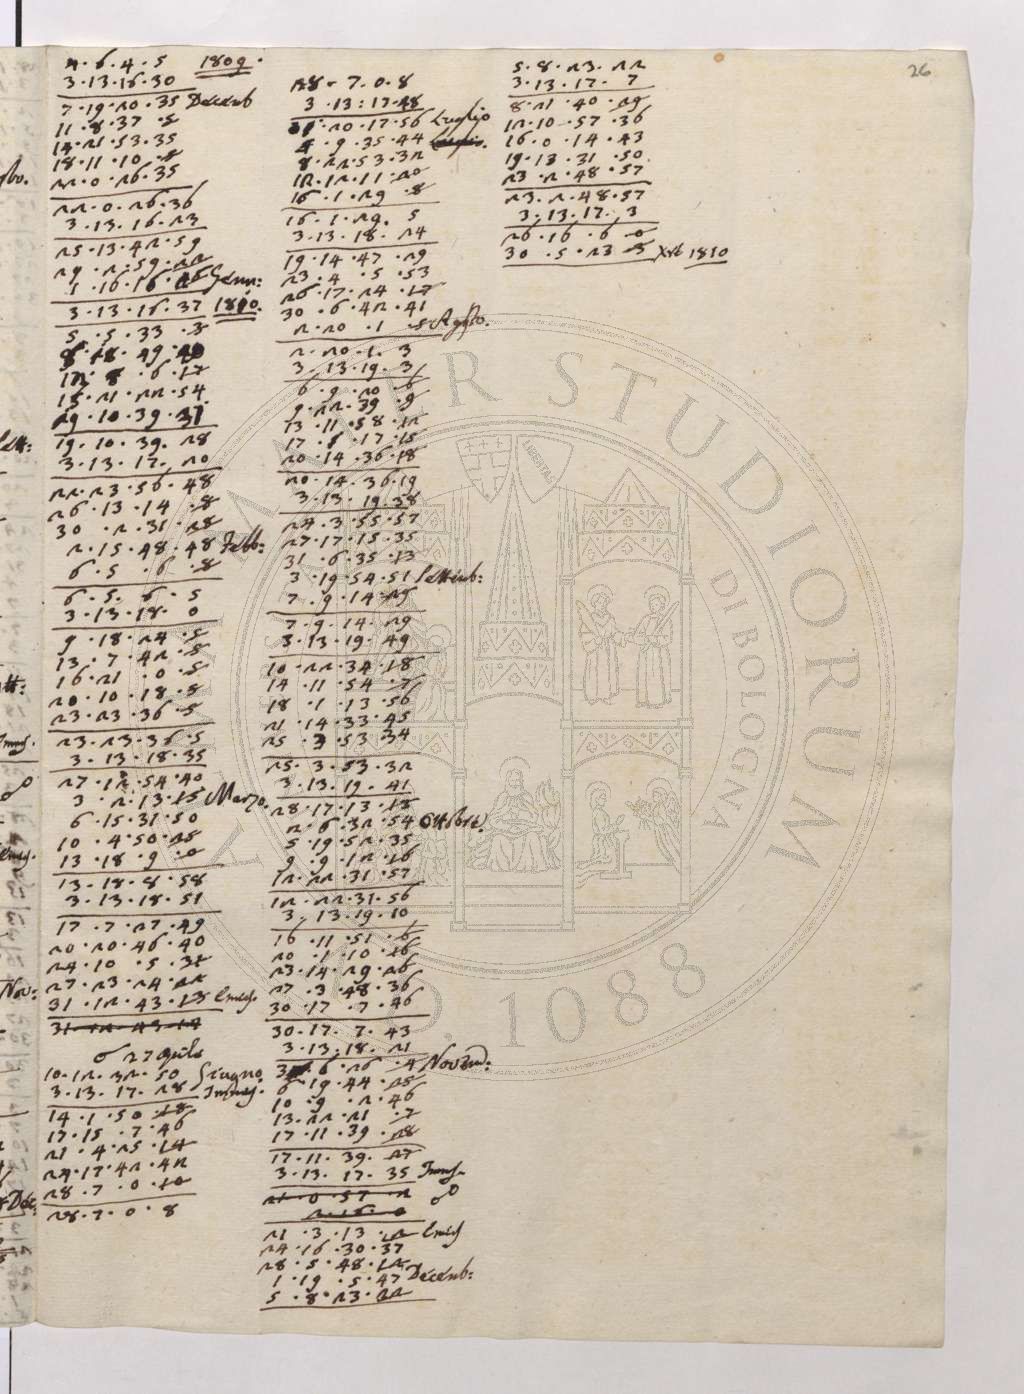 4·6·4·5 1809·
3·13·16·30
7·19·20·35 Decemb
11·8·37·5
14·21·53·35
18·11·10·5
22·0·26·35
22·0·26·36
3·13·16·23
25·13·42·59
29·2·59·22
1·16·16·26 Genn:
3·13·16·37 1810.
5·5·33·3
8·18·49·40
12·8·6·17
15·21·22·54
19·10·39·31
19·10·39·28
3·13·17·20
22·23·56·48
26·13·14·8
30·2·31·28
2·15·48·48 Febb:
6·5·6·8
6·5·6·5
3·13·18·0
9·18·24·5
13·7·42·5
16·21·0·5
20·10·18·5
23·23·36·5
23·23·36·5
3·13·18·35
27·12·54·40
3·2·13·15 Marzo.
6·15·31·50
10·4·50·25
13·18·9·0
13·18·8·58
3·13·18·51
17·7·27·49
20·20·46·40
24·10·5·31
27·23·24·22
31·12·43·13 Emers.
31·12·43·14
♂ 27 Aprile
10·12·32·50 Giugno.
3·13·17·28 Immers.
14·1·50·18
17·15·7·46
21·4·25·14
24·17·42·42
28·7·0·10
28·7·0·8
28·7·0·8
3·13:17·48
1·20·17·56 Luglio
5·9·35·44
8·22·53·32
12·12·11·20
16·1·29·8
16·1·29·5
3·13·18·24
19·14·47·29
23·4·5·53
26·17·24·17
30·6·42·41
2·20·1·5 Agosto.
2·20·1·3
3·13·19·3
6·9·20·6
9·22·39·9
13·11·58·12
17·1·17·15
20·14·36·18
20·14·36·19
3·13·19·38
24·3·55·57
27·17·15·35
31·6·35·13
3·19·54·51 Settemb:
7·9·14·29
7·9·14·29
3·13·19·49
10·22·34·18
14·11·54·7
18·1·13·56
21·14·33·45
25·3·53·34
25·3·53·32
3·13·19·41
28·17·13·13
2·6·32·54 Ottobre.
5·19·52·35
9·9·12·16
12·22·31·57
12·22·31·56
3·13·19·10
16·11·51·6
20·1·10·16
23·14·29·26
27·3·48·36
30·17·7·46
30·17·7·43
3·13:18·21
3·6·26·4 Novemb:
6·19·44·25
10·9·2·46
13·22·21·7
17·11·39·28
17·11·39·27
3·13·17·35 Immers.
21·0·57·2 ☍
2·16·0
21·3·13·2 Emers
24·16·30·37
28·5·48·12
1·19·5·47 Decemb:
5·8·23·22
5·8·23·22
3·13·17·7
8·21·40·29
12·10·57·36
16·0·14·43
19·13·31·50
23·2·48·57
23·2·48·57
3·13·17·3
26·16·6·0
30·5·23·3 Xbre 1810
26
ALMA MATER STUDIORUM
A.D. 1088
DI BOLOGNA
LIBERTAS